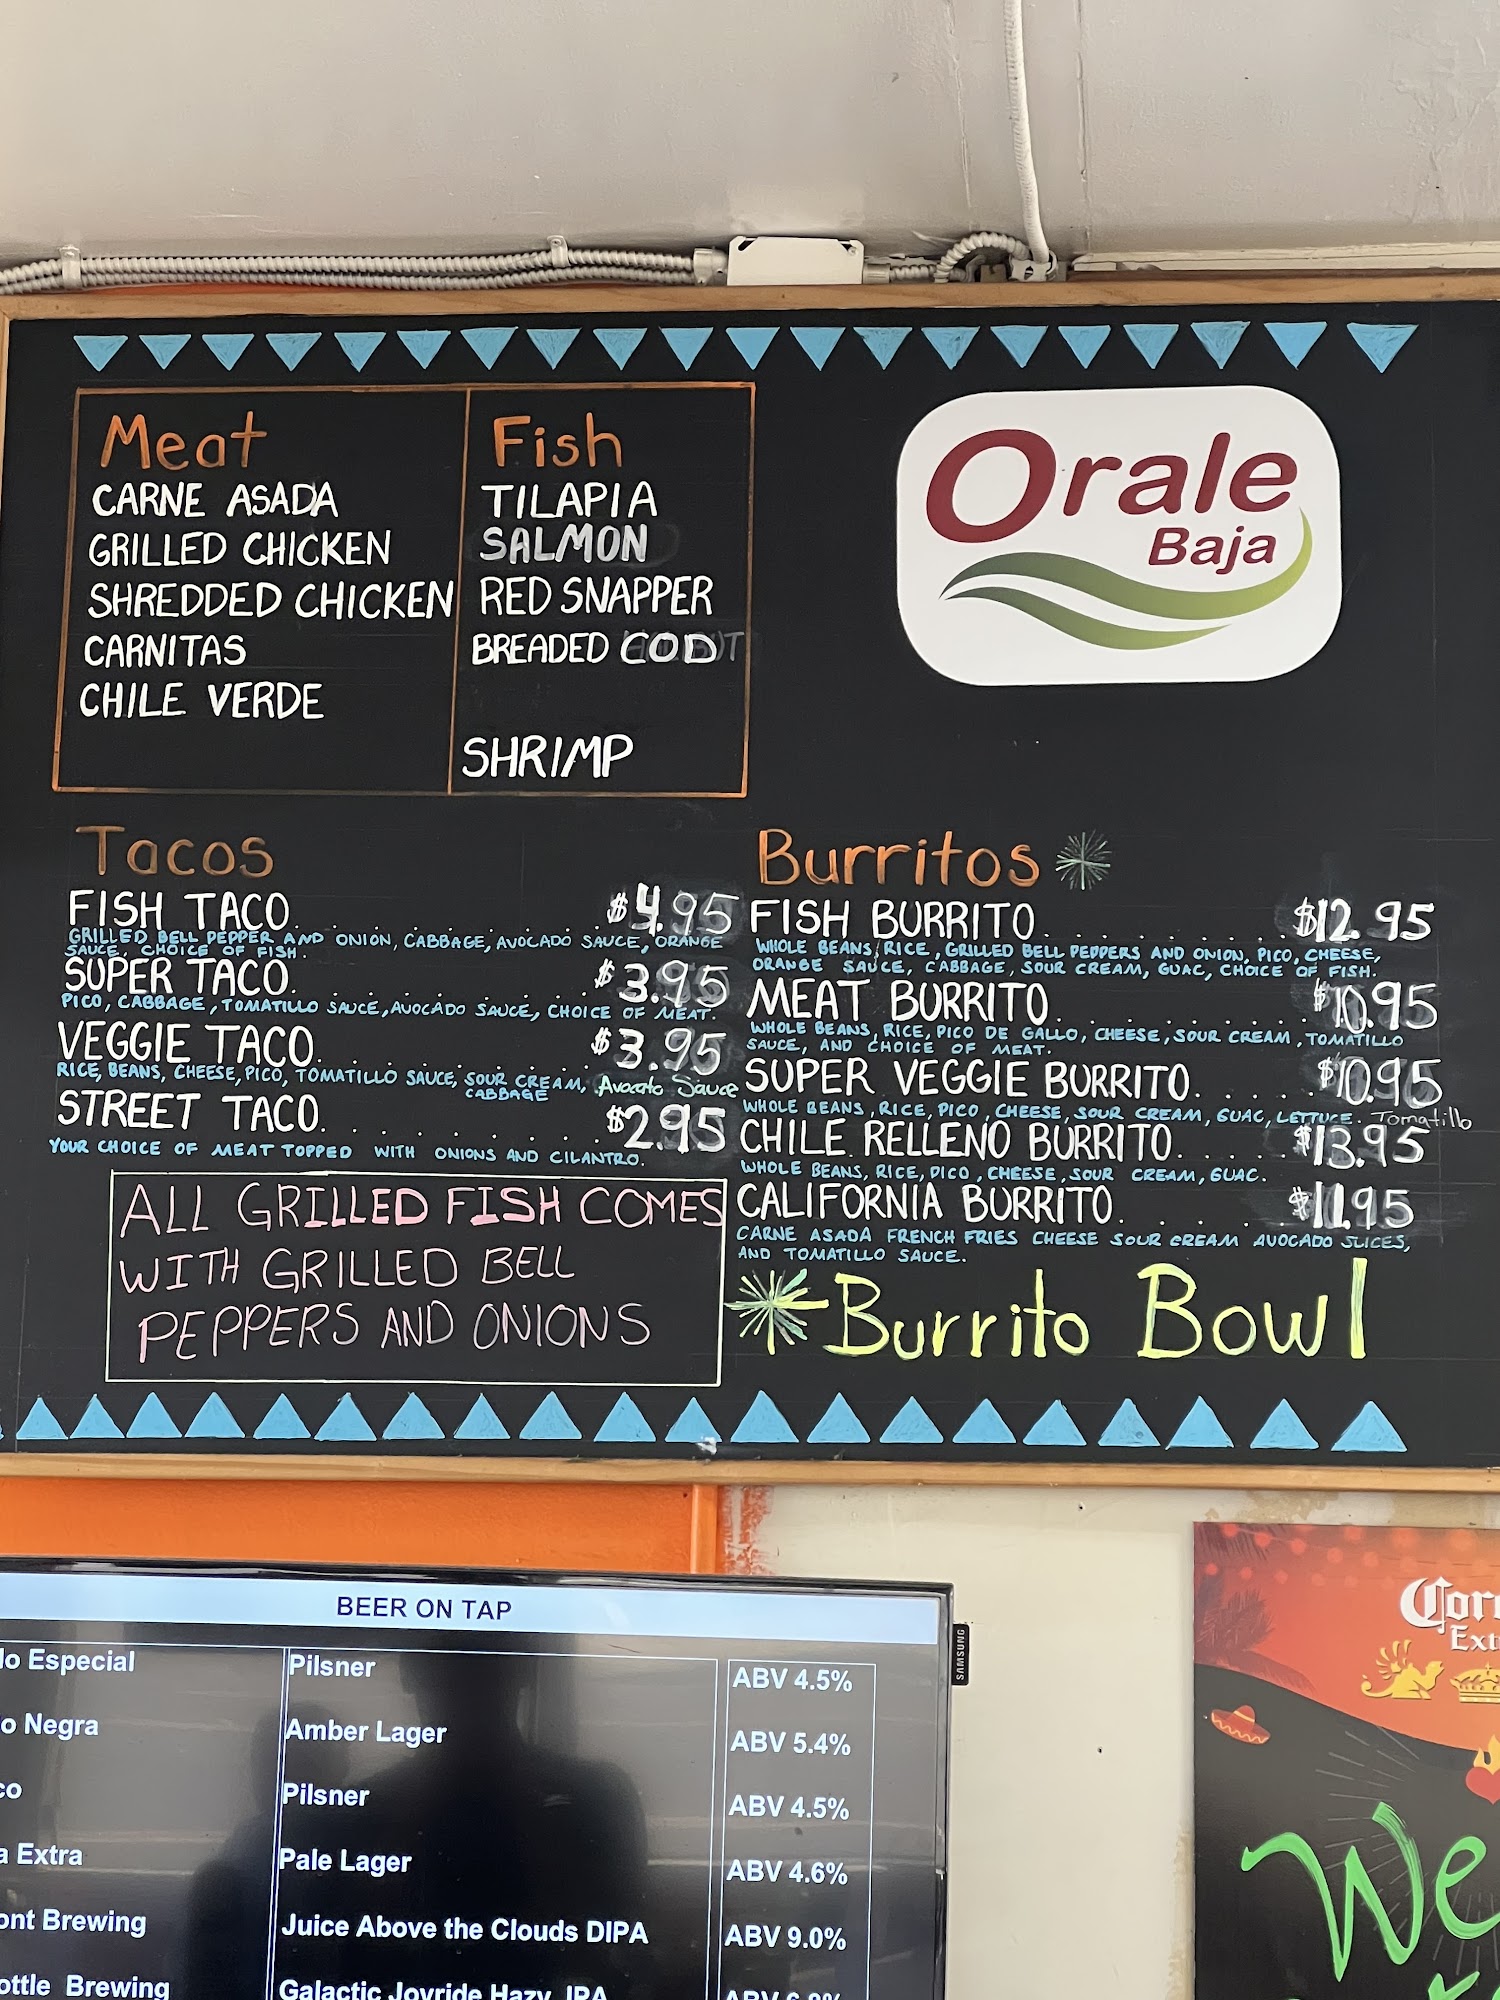 Meat
CARNE ASADA
GRILLED CHICKEN
SHREDDED CHICKEN
CARNITAS
CHILE VERDE
Fish
TILAPIA
SALMON
RED SNAPPER
BREADED COD
SHRIMP
Orale
Baja
Tacos
FISH TACO. . . . . . . . . . $4.95
GRILLED BELL PEPPER AND ONION, CABBAGE, AVOCADO SAUCE, ORANGE
SAUCE, CHOICE OF FISH.
SUPER TACO. . . . . . . . . . $3.95
PICO, CABBAGE, TOMATILLO SAUCE, AVOCADO SAUCE, CHOICE OF MEAT.
VEGGIE TACO. . . . . . . . . . $3.95
RICE, BEANS, CHEESE, PICO, TOMATILLO SAUCE, SOUR CREAM, Avocato Sauce
CABBAGE
STREET TACO. . . . . . . . . . $2.95
YOUR CHOICE OF MEAT TOPPED WITH ONIONS AND CILANTRO.
ALL GRILLED FISH COMES
WITH GRILLED BELL
PEPPERS AND ONIONS
Burritos
FISH BURRITO. . . . . . . . $12.95
WHOLE BEANS, RICE, GRILLED BELL PEPPERS AND ONION, PICO, CHEESE,
ORANGE SAUCE, CABBAGE, SOUR CREAM, GUAC, CHOICE OF FISH.
MEAT BURRITO. . . . . . . . . $10.95
WHOLE BEANS, RICE, PICO DE GALLO, CHEESE, SOUR CREAM, TOMATILLO
SAUCE, AND CHOICE OF MEAT.
SUPER VEGGIE BURRITO. . . . . $10.95
WHOLE BEANS, RICE, PICO, CHEESE, SOUR CREAM, GUAC, LETTUCE. Tomatillo
CHILE RELLENO BURRITO. . . . . $13.95
WHOLE BEANS, RICE, PICO, CHEESE, SOUR CREAM, GUAC.
CALIFORNIA BURRITO. . . . . $11.95
CARNE ASADA FRENCH FRIES CHEESE SOUR CREAM AVOCADO SLICES,
AND TOMATILLO SAUCE.
Burrito Bowl
BEER ON TAP
lo Especial Pilsner ABV 4.5%
o Negra Amber Lager ABV 5.4%
co Pilsner ABV 4.5%
a Extra Pale Lager ABV 4.6%
ont Brewing Juice Above the Clouds DIPA ABV 9.0%
ottle Brewing Galactic Joyride Hazy IPA
SAMSUNG
Coro
Ext
We